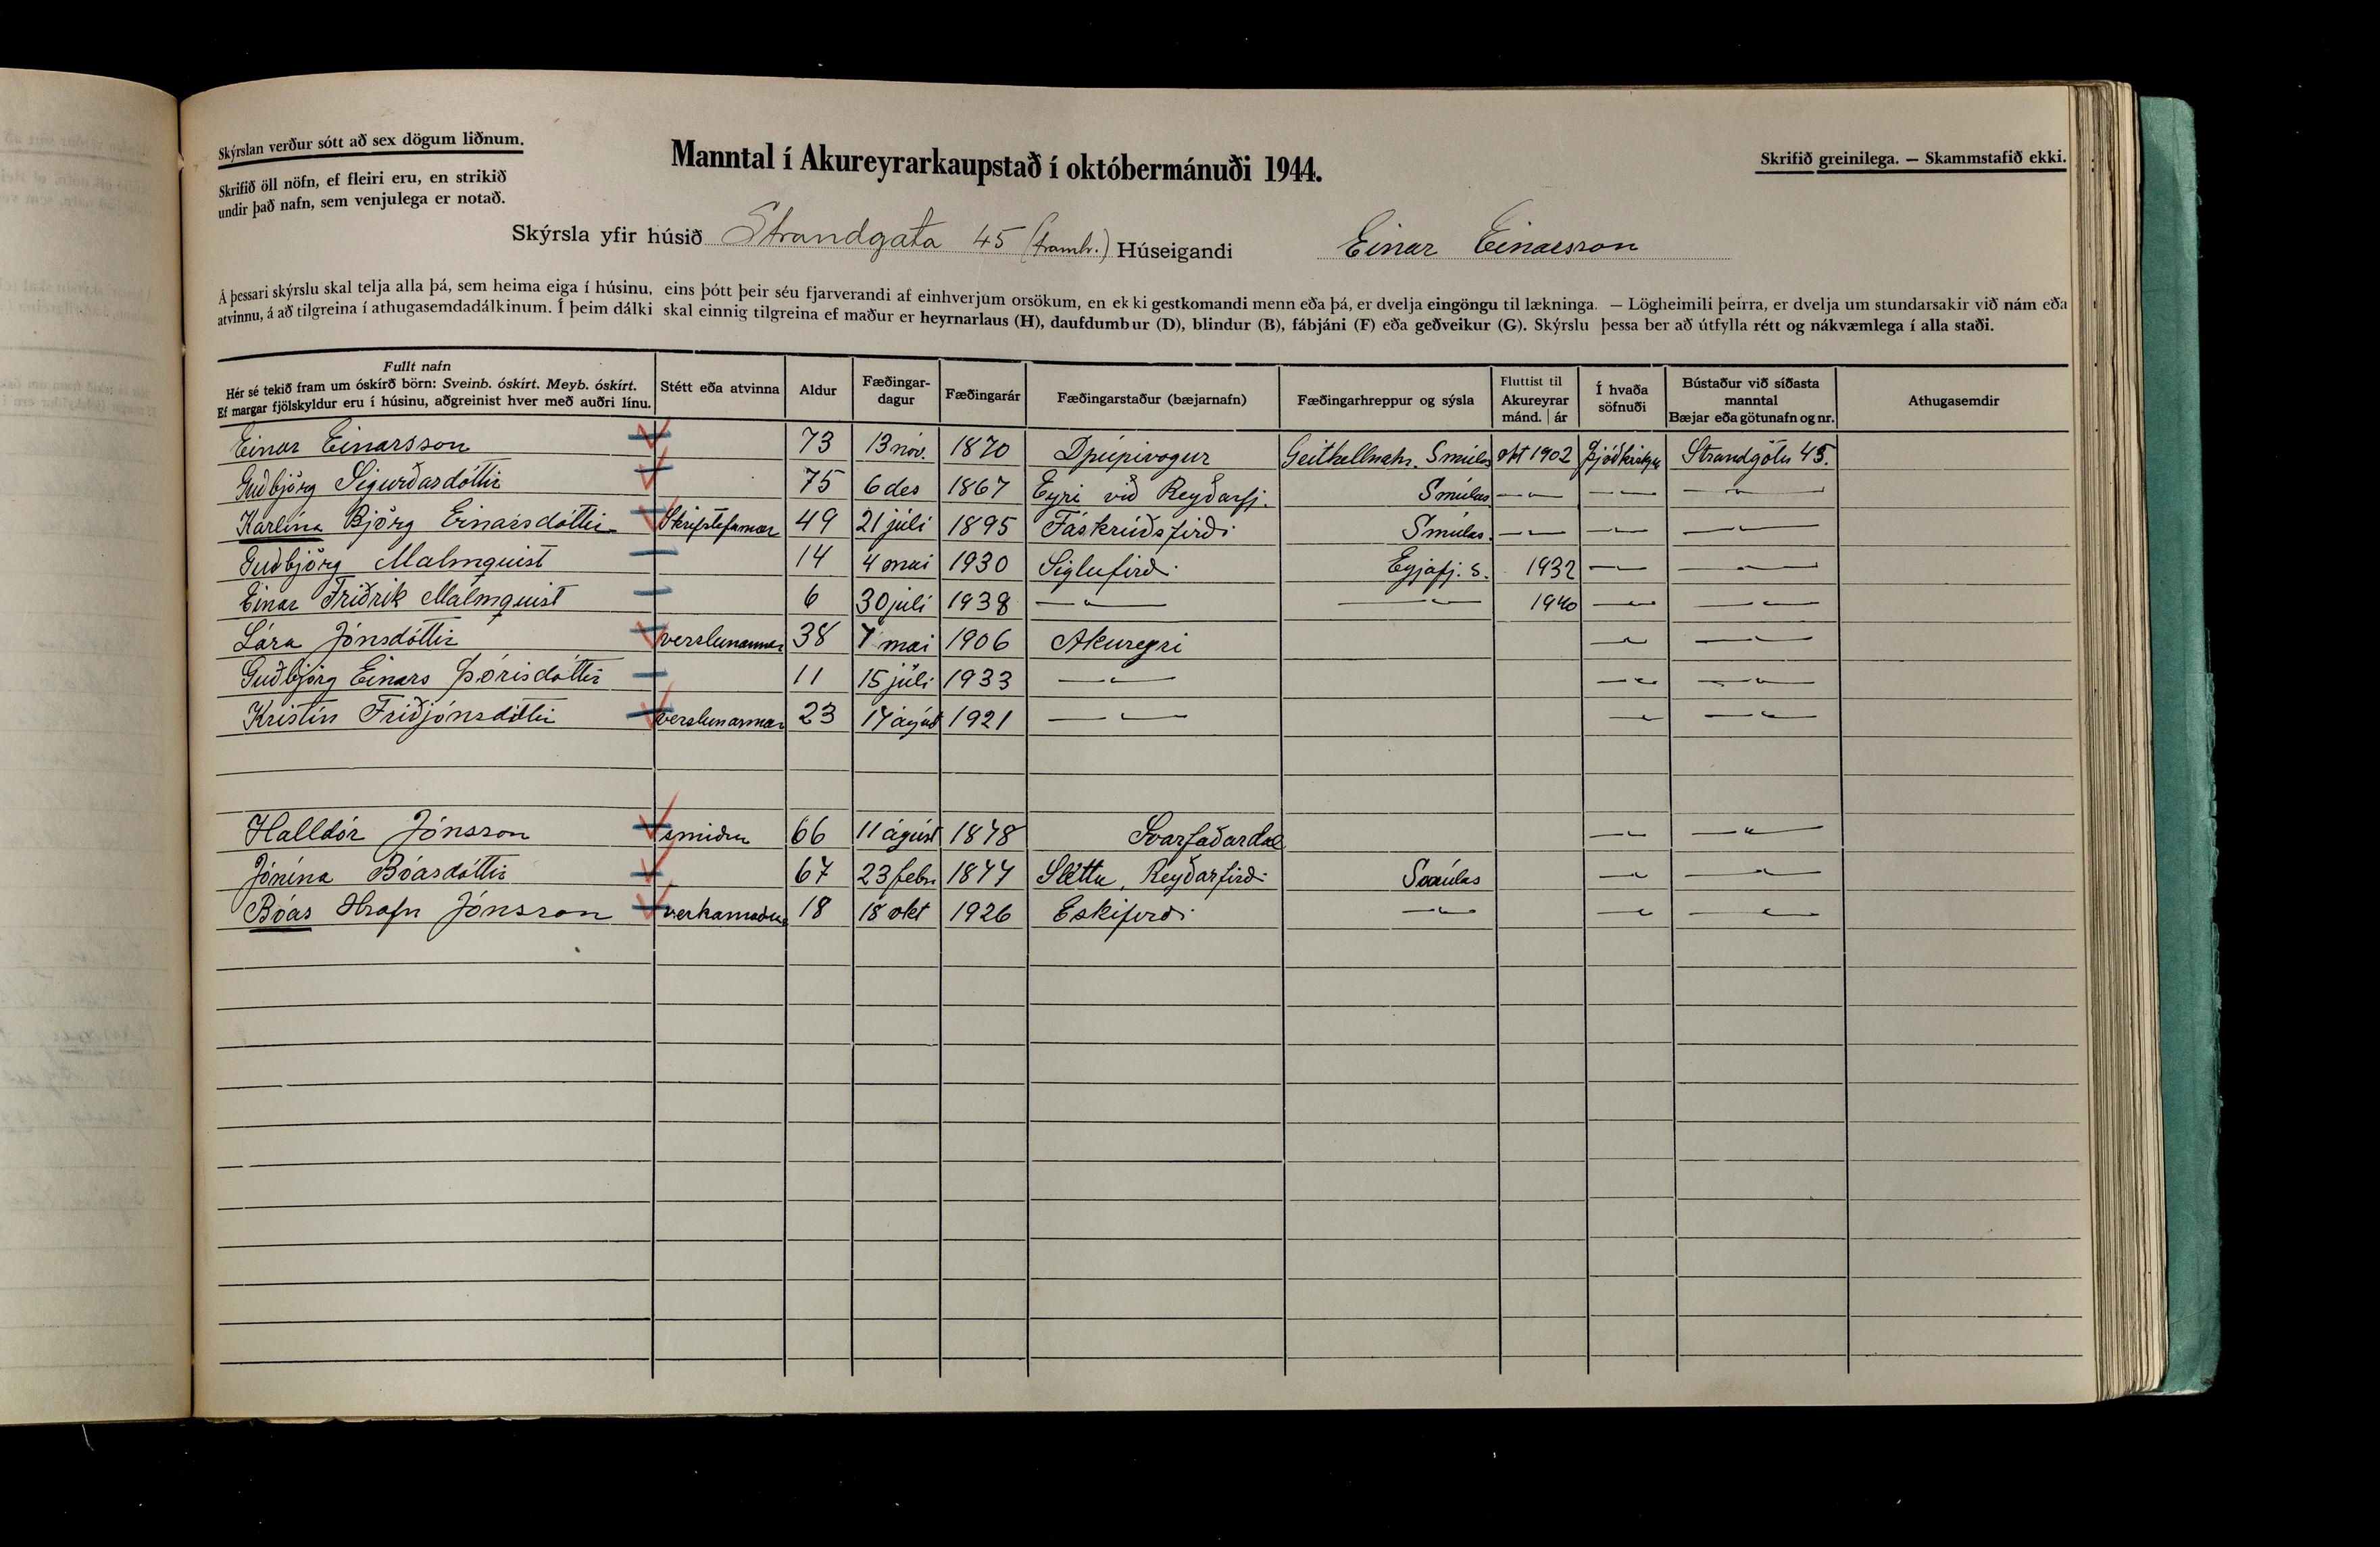 Skýrslan verður sótt að sex dögum liðnum.
Skrifið öll nöfn, ef fleiri eru, en strikið
undir það nafn, sem venjulega er notað.
Manntal í Akureyrarkaupstað í októbermánuði 1944.
Skrifið greinilega. — Skammstafið ekki.
Skýrsla yfir húsið Strandgata 45 (framh.) Húseigandi Einar Einarsson
Á þessari skýrslu skal telja alla þá, sem heima eiga í húsinu, eins þótt þeir séu fjarverandi af einhverjum orsökum, en ekki gestkomandi menn eða þá, er dvelja eingöngu til lækninga. — Lögheimili þeirra, er dvelja um stundarsakir við nám eða
atvinnu, á að tilgreina í athugasemdadálkinum. Í þeim dálki skal einnig tilgreina ef maður er heyrnarlaus (H), daufdumbur (D), blindur (B), fábjáni (F) eða geðveikur (G). Skýrslu þessa ber að útfylla rétt og nákvæmlega í alla staði.
Fullt nafn
Hér sé tekið fram um óskírð börn: Sveinb. óskírt. Meyb. óskírt.
Ef margar fjölskyldur eru í húsinu, aðgreinist hver með auðri línu.
Stétt eða atvinna
Aldur
Fæðingar-
dagur
Fæðingarár
Fæðingarstaður (bæjarnafn)
Fæðingarhreppur og sýsla
Fluttist til
Akureyrar
mánd. | ár
Í hvaða
söfnuði
Bústaður við síðasta
manntal
Bæjar eða götunafn og nr.
Athugasemdir
Einar Einarsson 73 13 nóv. 1870 Djúpivogur Geithellnahr. Smúlas okt 1902 Þjóðkirkju Strandgötu 45.
Guðbjörg Sigurðardóttir 75 6 des 1867 Eyri við Reyðarfj. Smúlas — " — — " — — " —
Karlína Björg Einarsdóttir Skrifstofumær 49 21 júlí 1895 Fáskrúðsfirði Smúlas. — " — — " — — " —
Guðbjörg Malmquist 14 4 maí 1930 Siglufirði Eyjafj. s. 1932 — " — — " —
Einar Friðrik Malmquist 6 30 júlí 1938 — " — — " — 1940 — " — — " —
Lára Jónsdóttir verslunarmær 38 7 maí 1906 Akureyri — " — — " —
Guðbjörg Einars Þórisdóttir 11 15 júlí 1933 — " — — " — — " —
Kristín Friðjónsdóttir verslunarmær 23 17 ágúst 1921 — " — — " — — " —
Halldór Jónsson smiður 66 11 ágúst 1878 Svarfaðardal — " — — " —
Jónína Bóasdóttir 67 23 febr 1877 Sléttu, Reyðarfirði Smúlas — " — — " —
Bóas Hrafn Jónsson verkamaður 18 18 okt 1926 Eskifirði — " — — " — — " —